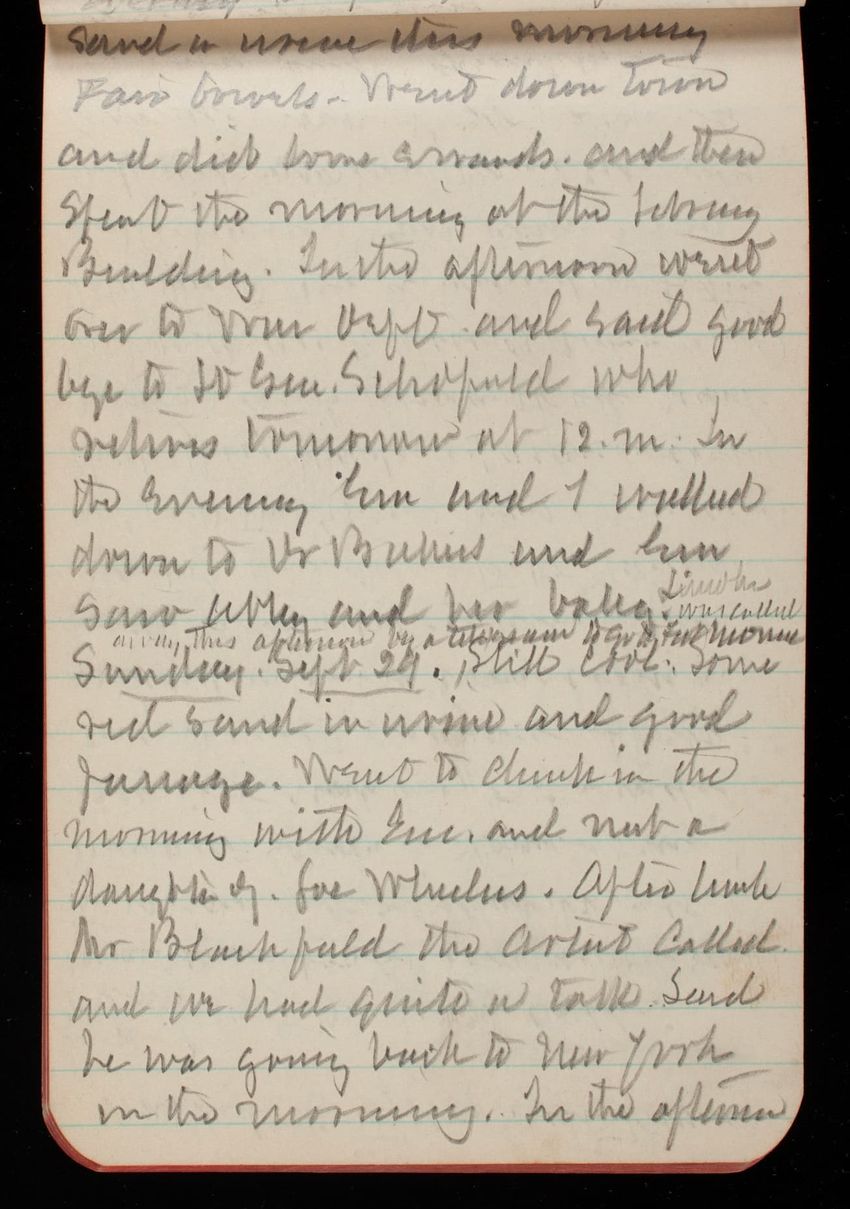 Sand in urine this morning
Fair bowels. Went down town
and did some errands. and then
spent the morning at the Library
Building. In the afternoon went
over to War Dept. and said good
bye to Lt Gen. Schofield who
retires tomorrow at 12. m. In
the evening Em and I walked
down to Dr and Em
saw Abby and her baby. Lincoln
was called
away this afternoon by a telegram to go to Fort Monroe
Sunday. Sept 29. Still cool. Some
red sand in urine and good
passage. Went to church in the
morning with Em. and met a
daughter of. Joe Wheelers. After lunch
Mr Blashfield the artist called.
and we had quite a talk. Said
he was going back to New York
in the morning. In the afternoon